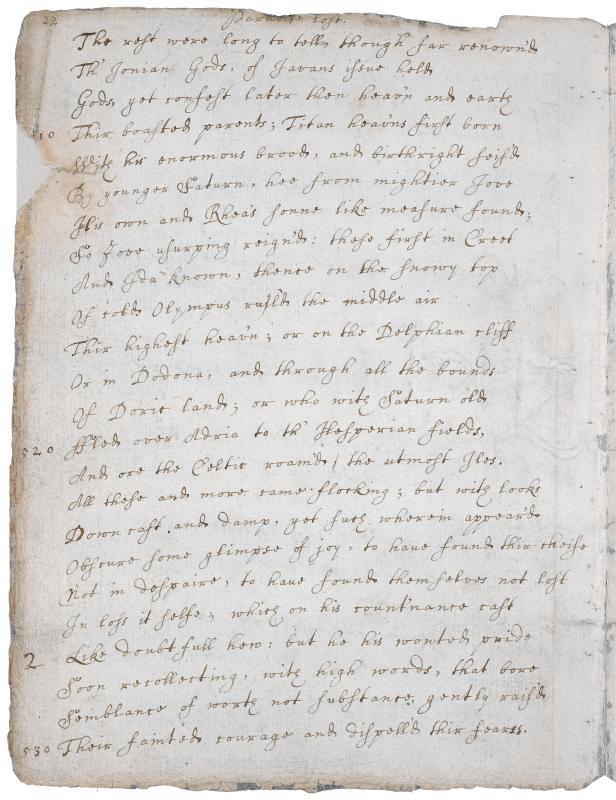 22 Paradise lost.
The rest were long to tell, though far renown'd
Th' Ionian Gods, of Iavans issue held
Gods, yet confest later then heav'n and earth
10 Thir boasted parents; Titan heav'ns first born
With his enormous brood, and birthright seis'd
By younger Saturn, hee from mightier Jove
His own and Rhea's sonne like measure found;
So Jove usurping reign'd: these first in Creet
And Ida known, thence on the snowy top
Of cold Olympus rul'd the middle air
Thir highest heav'n; or on the Delphian cliff
Or in Dodona, and through all the bounds
Of Doric land; or who with Saturn old
520 ffled over Adria to th' Hesperian fields,
And ore the Celtic roam'd / the utmost Iles.
All these and more came flocking; but with looks
Down cast and damp, yet such wherein appear'd
Obscure some glimpse of joy, to have found thir cheife
Not in despaire, to have found themselves not lost
In loss it selfe; which on his count'nance cast
2 Like doubtfull hew: but he his wonted pride
Soon recollecting, with high words, that bore
Semblance of worth not substance, gently rais'd
530 Their fainted courage and dispell'd thir feares.